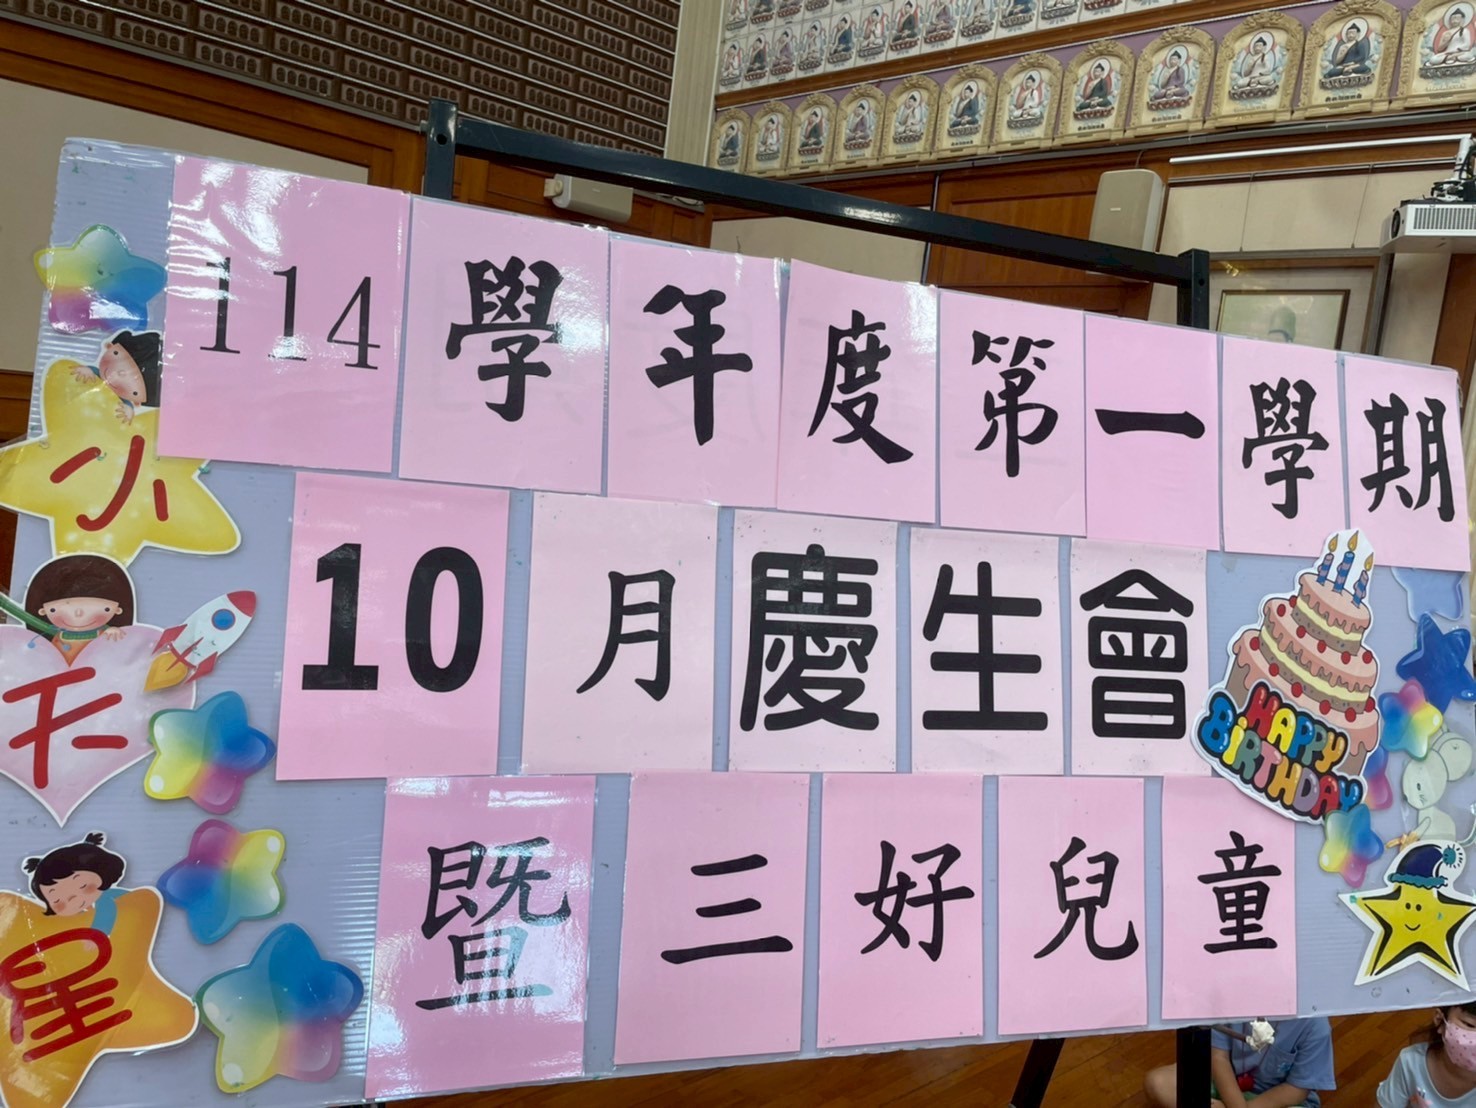 114學年度第一學期
10月慶生會
暨三好兒童
小
天
星
HAPPY
BiRTHDAY